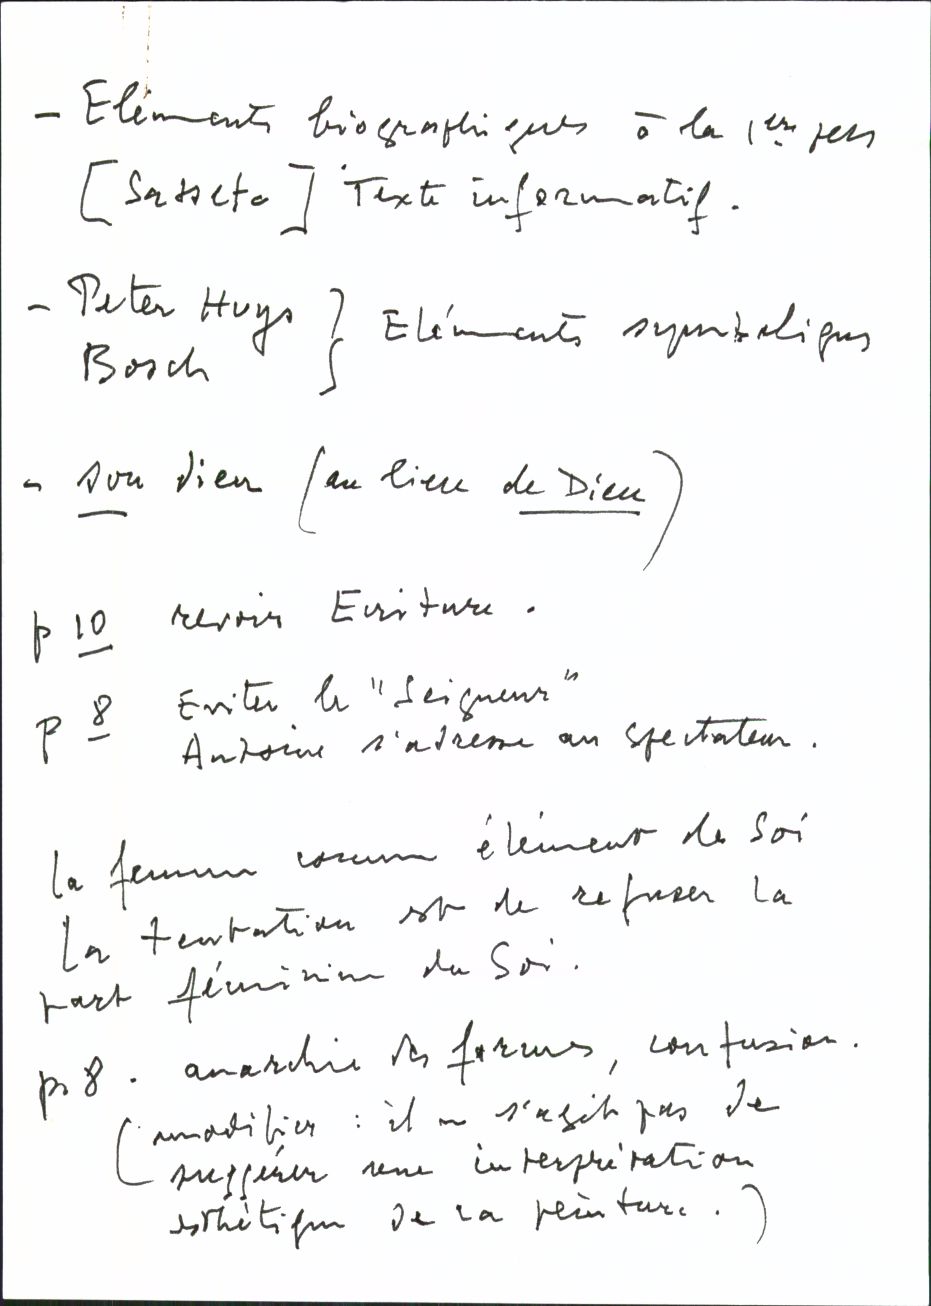 - Eléments biographiques à la 1ère pers
[Sassetta] Texte informatif.
- Peter Huys } Eléments symboliques
Bosch
- son dieu (au lieu de Dieu)
p 10 revoir Ecriture.
p 8 Eviter le "Seigneur"
Antoine s'adresse au spectateur.
La femme comme élément de Soi
La tentation est de refuser la
part féminine du Soi.
p 8. anarchie des formes, confusion.
(modifier : il ne s'agit pas de
suggérer une interprétation
esthétique de la peinture.)